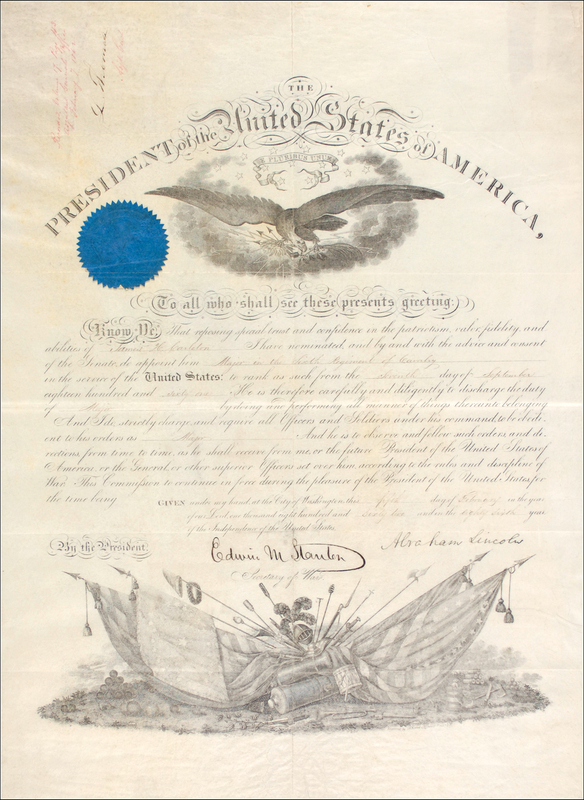 L Thomas
THE
PRESIDENT of the United States of AMERICA,
E PLURIBUS UNUM
To all who shall see these presents greeting:
Know Ye, That reposing special trust and confidence in the patriotism, valor, fidelity, and
abilities of James H. I have nominated, and by and with the advice and consent
of the Senate, do appoint him Major in the Sixth Regiment of Cavalry
in the service of the United States: to rank as such from the seventh day of September
eighteen hundred and sixty one He is therefore carefully and diligently to discharge the duty
of Major by doing and performing all manner of things thereunto belonging.
And I do strictly charge, and require all Officers and Soldiers under his command, to be obedi-
ent to his orders as Major And he is to observe and follow such orders, and di-
rections, from time to time, as he shall receive from me, or the future President of the United States of
America, or the General, or other superior Officers set over him, according to the rules and discipline of
War. This Commission to continue in force during the pleasure of the President of the United States, for
the time being.
GIVEN under my hand at the City of Washington, this fifth day of February in the year
of our Lord one thousand eight hundred and sixty two and in the eighty sixth year
of the Independence of the United States.
By the President
Abraham Lincoln
Edwin M Stanton
Secretary of War